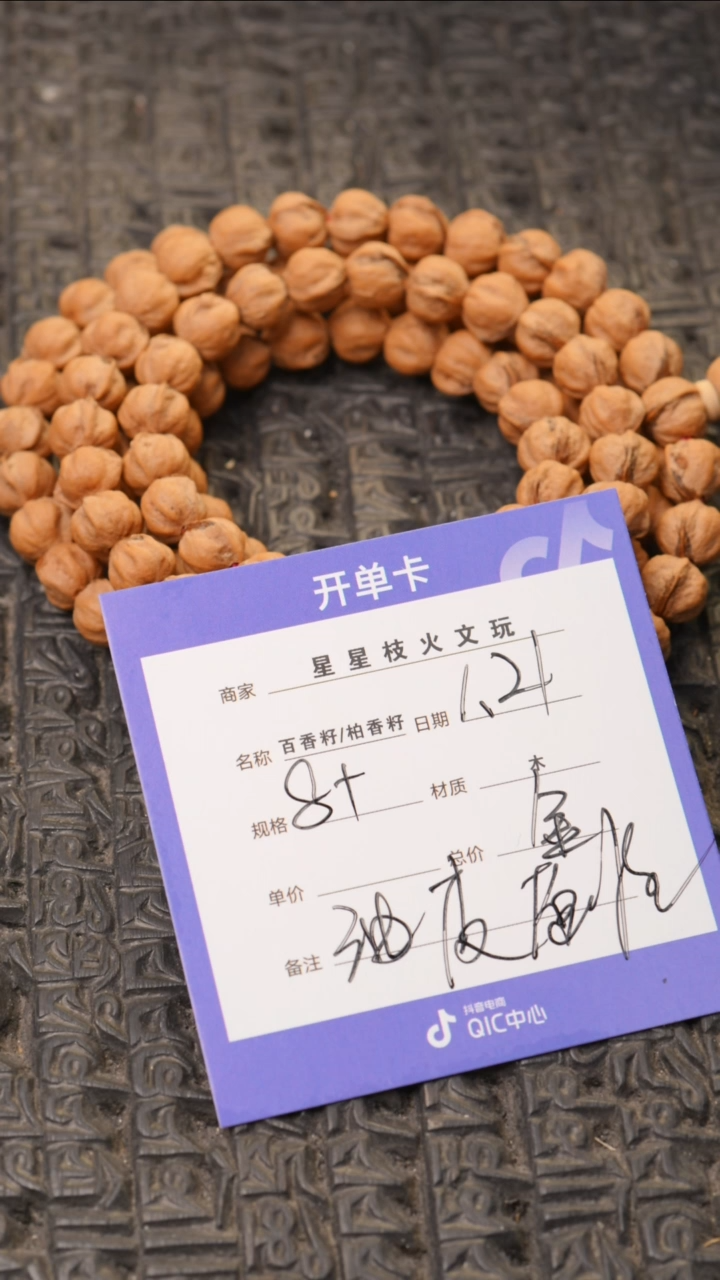 开单卡
商家 星星枝火文玩
名称 百香籽/柏香籽 日期 1.21
规格 8+ 材质 木
单价 总价
备注 油皮
抖音电商
QIC中心